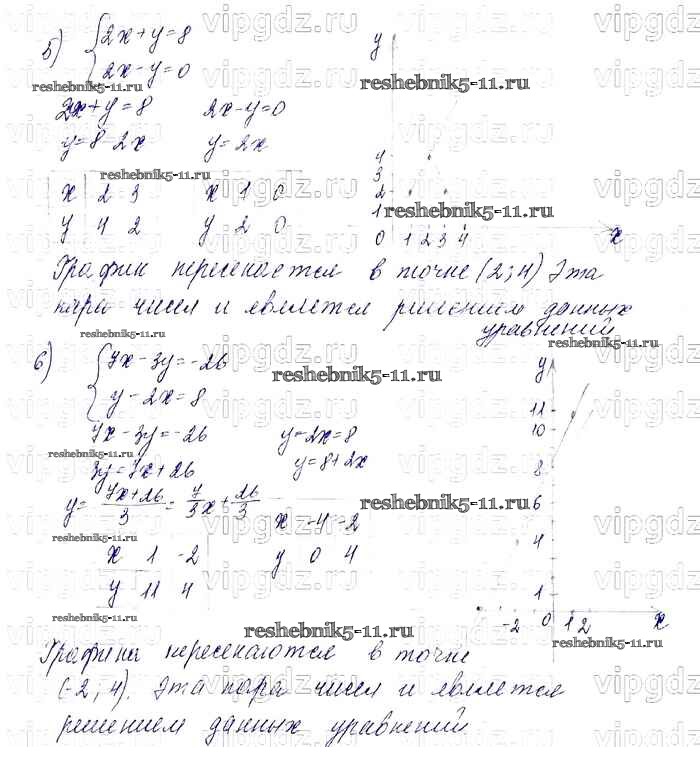 5) { 2x + y = 8
2x - y = 0
2x + y = 8   2x - y = 0
y = 8 - 2x   y = 2x
x 2 3   x 1 0
y 4 2   y 2 0
y
4
3
2
1
0 1 2 3 4 x
График пересекается в точке (2; 4) Эта
пара чисел и является решением данных
уравнений
6) { 7x - 3y = -26
y - 2x = 8
7x - 3y = -26   y - 2x = 8
3y = 7x + 26   y = 8 + 2x
y = 7x+26/3 = 7/3 x + 26/3
x -4 -2
x 1 -2   y 0 4
y 11 4
y
11
10
8
6
4
1
-2 0 1 2 x
Графики пересекаются в точке
(-2; 4). Эта пара чисел и является
решением данных уравнений
reshebnik5-11.ru
vipgdz.ru